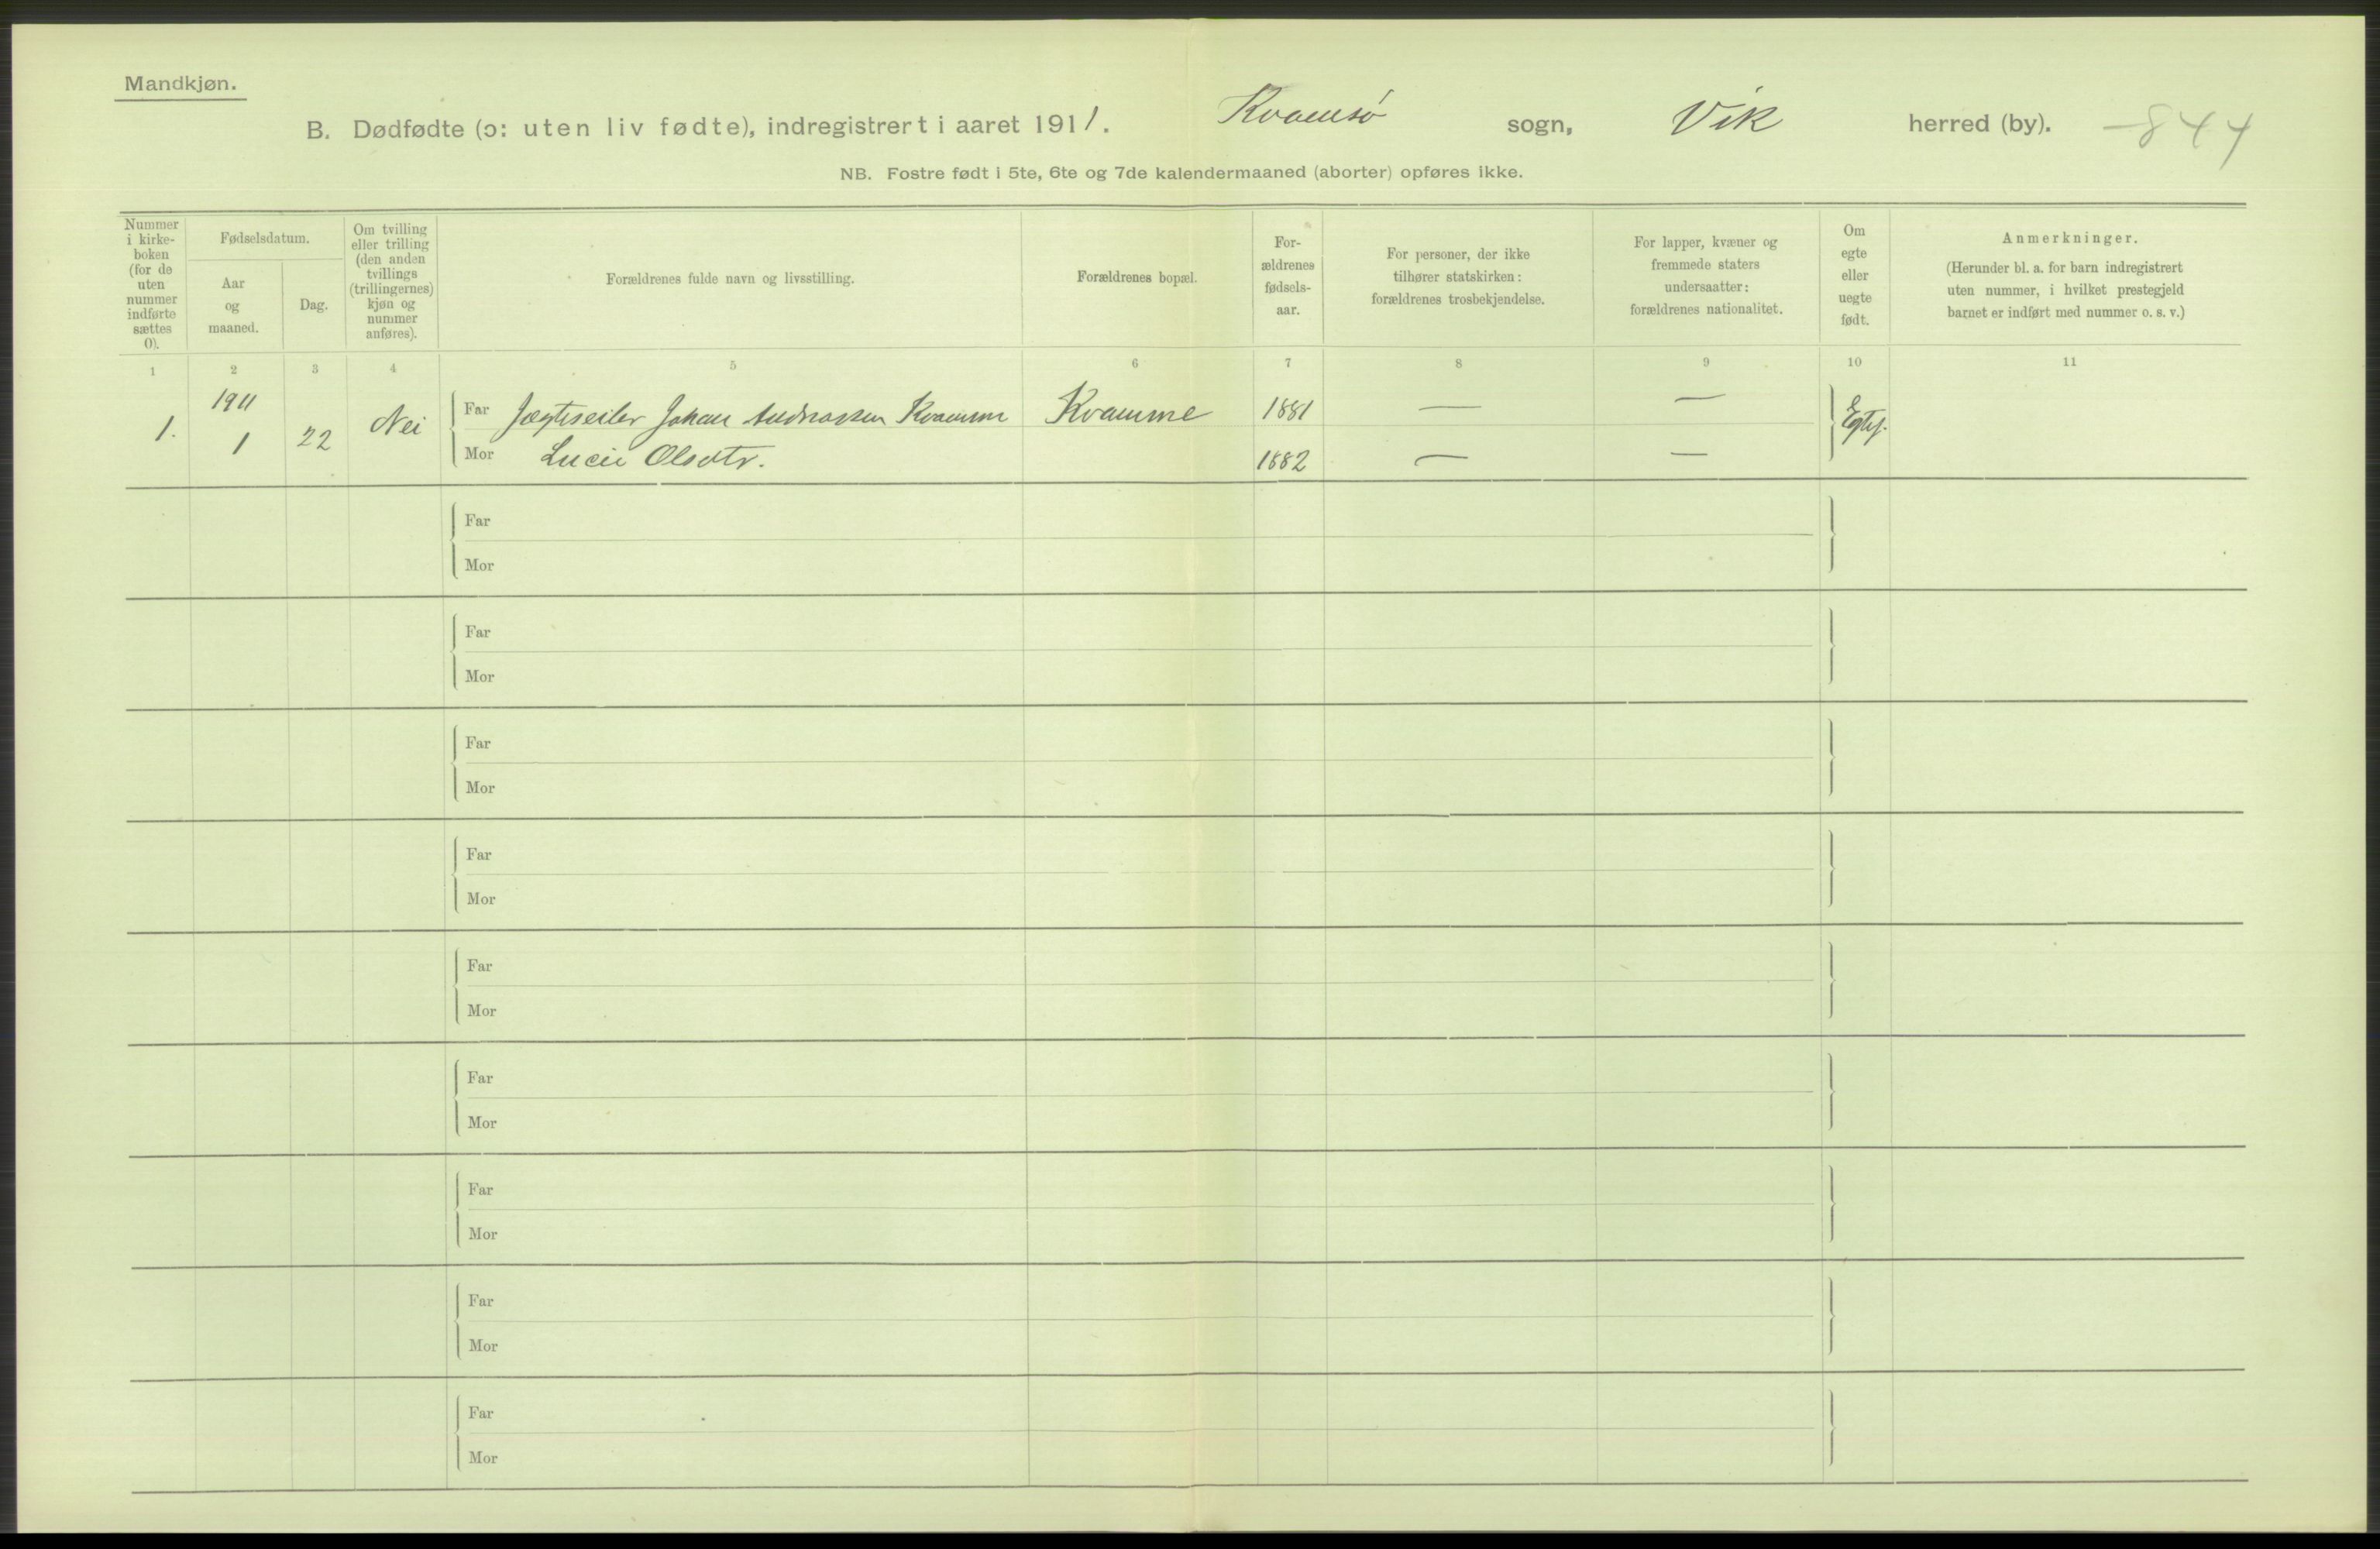 Mandkjøn.
B. Dødfødte (ɔ: uten liv fødte), indregistrert i aaret 1911. Kvamsø sogn, Vik herred (by). -844
NB. Fostre født i 5te, 6te og 7de kalendermaaned (aborter) opføres ikke.
Nummer
i kirke-
boken
(for de
uten
nummer
indførte
sættes
0).
Fødselsdatum.
Aar
og
maaned.
Dag.
Om tvilling
eller trilling
(den anden
tvillings
(trillingernes)
kjøn og
nummer
anføres).
Forældrenes fulde navn og livsstilling.
Forældrenes bopæl.
For-
ældrenes
fødsels-
aar.
For personer, der ikke
tilhører statskirken:
forældrenes trosbekjendelse.
For lapper, kvæner og
fremmede staters
undersaatter:
forældrenes nationalitet.
Om
egte
eller
uegte
født.
Anmerkninger.
(Herunder bl. a. for barn indregistrert
uten nummer, i hvilket prestegjeld
barnet er indført med nummer o. s. v.)
1 2 3 4 5 6 7 8 9 10 11
1. 1911 1 22 Nei Far Jægteseiler Johan Andreassen Kvamme Kvamme 1881 — — Egte f.
Mor Lucie Olsdtr. 1882 — —
Far
Mor
Far
Mor
Far
Mor
Far
Mor
Far
Mor
Far
Mor
Far
Mor
Far
Mor
Far
Mor